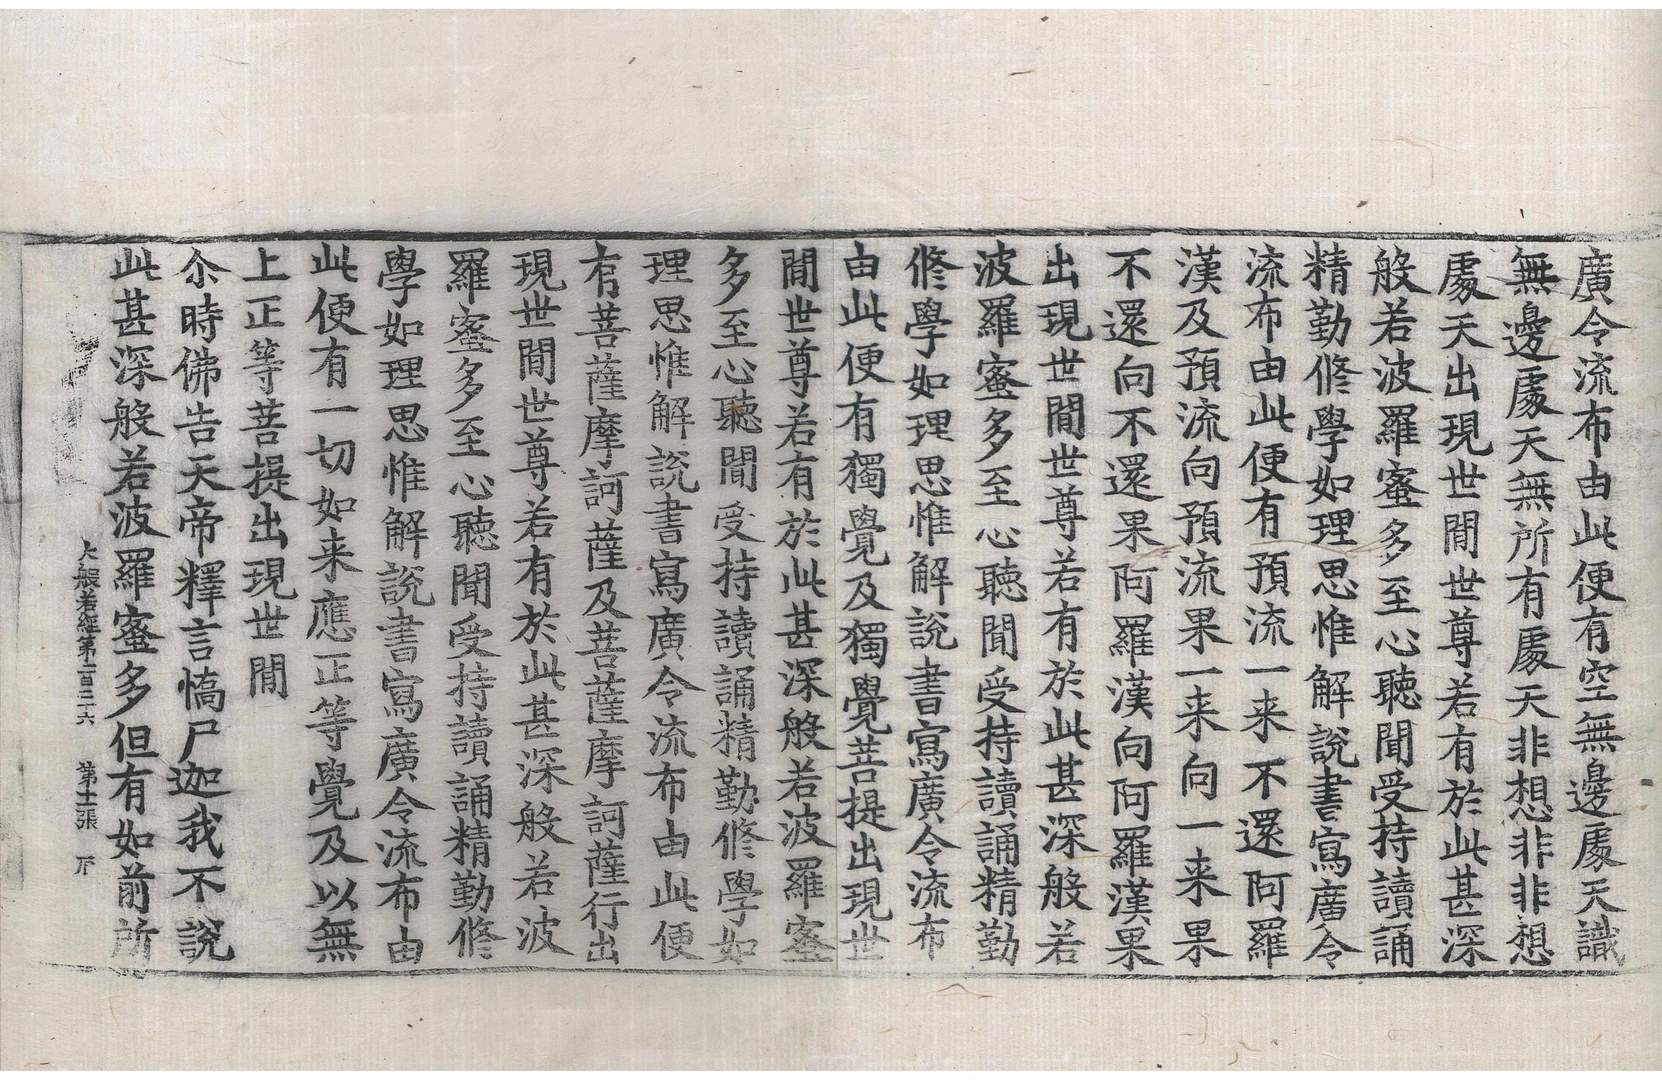 廣令流布由此便有空無邊處天識
無邊處天無所有處天非想非非想
處天出現世閒世尊若有於此甚深
般若波羅蜜多至心聽聞受持讀誦
精勤修學如理思惟解說書寫廣令
流布由此便有預流一来不還阿羅
漢及預流向預流果一来向一来果
不還向不還果阿羅漢向阿羅漢果
出現世閒世尊若有於此甚深般若
波羅蜜多至心聽聞受持讀誦精勤
修學如理思惟解說書寫廣令流布
由此便有獨覺及獨覺菩提出現世
閒世尊若有於此甚深般若波羅蜜
多至心聽聞受持讀誦精勤修學如
理思惟解說書寫廣令流布由此便
有菩薩摩訶薩及菩薩摩訶薩行出
現世閒世尊若有於此甚深般若波
羅蜜多至心聽聞受持讀誦精勤修
學如理思惟解說書寫廣令流布由
此便有一切如来應正等覺及以無
上正等菩提出現世閒
尒時佛告天帝釋言憍尸迦我不說
此甚深般若波羅蜜多但有如前所
大般若經第一百二十六 第十一張 斥